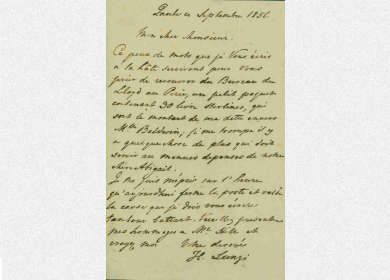 Zante ce Septembre 1856.
Mon cher Monsieur.
Ce peu de mots que je Vous écris
à la hâte serviront pour Vous
prier de recevoir du Bureau du
Lloyd au Pirée, un petit paquet
contenant 30 livres Sterlines, qui
sont le montant de ma dette envers
Mlle Baldwin; si me trompe il y
a quelque chose de plus que doit
servir au menues depenses de notre
chère Abigail.
Je me suis mépris sur l'heure
qu'aujourdhui ferme la poste et voilà
la cause que je dois vous écrire
tambour battant. Veuillez presenter
mes hommages à Mr Hill et
croyez moi Votre devoué
H. Lunzi